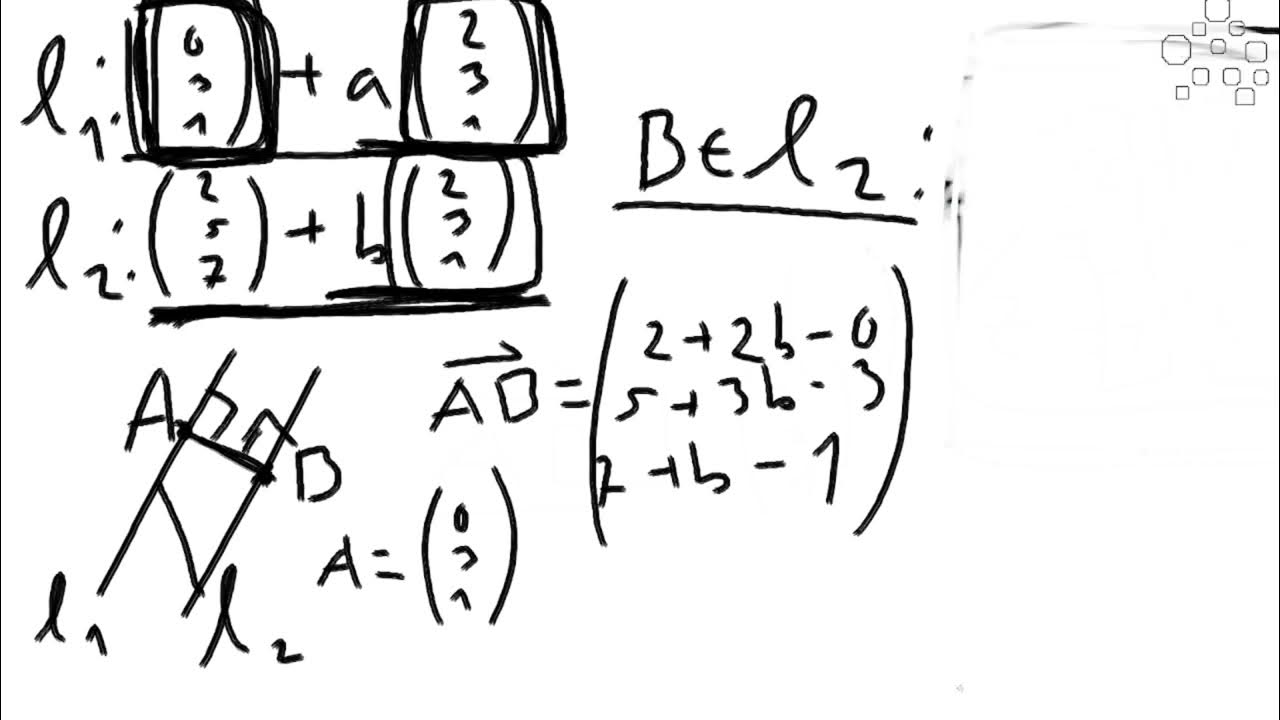 l₁: (0 3 1) + a (2 3 1)
l₂: (2 5 7) + b (2 3 1)
B ∈ l₂:
AB = (2 + 2b - 0
5 + 3b - 3
7 + b - 1)
A
B
A = (0 3 1)
l₁
l₂